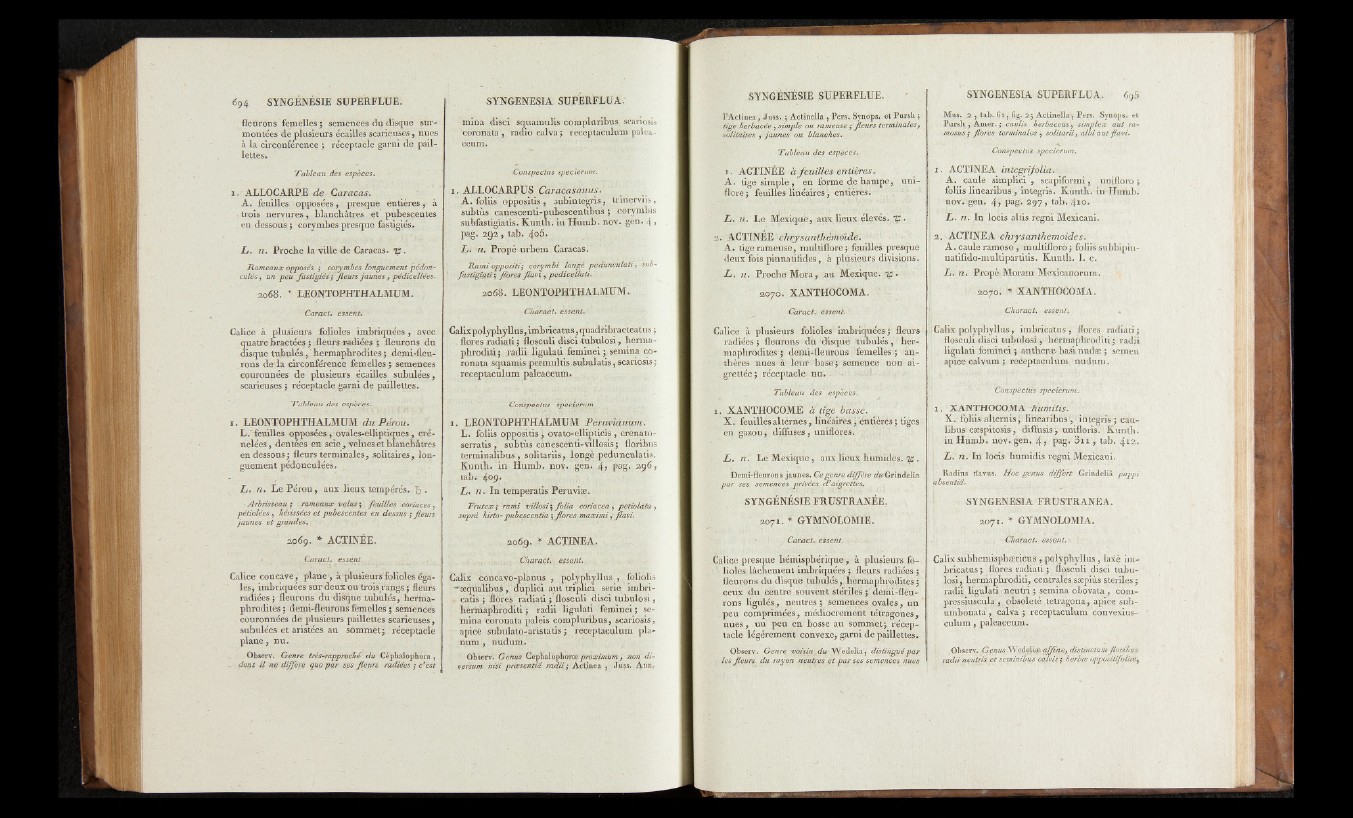 694 SYNGÉNÉSIE SUPERFLUE.
fleurons femelles ; semences du disque sur-
montées de plusieurs écailles scarieuses, nues
à la circonférence ; réceptacle garni de pail-
lettes.
Tableau des espèces.
1. ALLOCARPE de Caracas.
A. feuilles opposées, presque entières, à
trois nervures, blanchâtres et pubescentes
en dessous ; corymbes presque fastigiés.
L. n. Proche la ville de Caracas. ♃.
Rameaux opposés ; corymbes longuement pédon-
culés, un peu fastigiés ; fleurs jaunes, pédicellées.
2068. * LEONTOPHTHALMUM.
Caract. essent.
Calice à plusieurs folioles imbriquées, avec
quatre bractées ; fleurs radiées ; fleurons du
disque tubulés, hermaphrodites ; demi-fleu-
rons de la circonférence femelles ; semences
couronnées de plusieurs écailles subulées,
scarieuses ; réceptacle garni de paillettes.
Tableau des espèces.
1. LEONTOPHTHALMUM du Pérou.
L. feuilles opposées, ovales-elliptiques, cré-
nelées, dentées en scie, velues et blanchâtres
en dessous ; fleurs terminales, solitaires, lon-
guement pédonculées.
L. n. Le Pérou, aux lieux tempérés. ♄.
Arbrisseau ; rameaux velus ; feuilles coriaces,
pétiolées, hérissées et pubescentes en dessus ; fleurs
jaunes et grandes.
2069. * ACTINÉE.
Caract. essent.
Calice concave, plane, à plusieurs folioles éga-
les, imbriquées sur deux ou trois rangs ; fleurs
radiées ; fleurons du disque tubulés, herma-
phrodites ; demi-fleurons femelles ; semences
couronnées de plusieurs paillettes scarieuses,
subulées et aristées au sommet ; réceptacle
plane, nu.
Observ. Genre très-rapproché du Céphalophora,
dont il ne diffère que par ses fleurs radiées ; c'est
SYNGENESIA SUPERFLUA.
mina disci squamulis compluribus scariosis
coronata, radio calva ; receptaculum palea-
ceum.
Conspectus specierum.
1. ALLOCARPUS Caracasanus.
A. foliis oppositis, subintegris, trinerviis,
subtùs canescenti-pubescentibus ; corymbis
subfastigiatis. Kunth. in Humb. nov. gen. 4,
pag. 292, tab. 406.
L. n. Propè urbem Caracas.
Rami oppositi ; corymbi longè pedunculati, sub-
fastigiati ; flores flavi, pedicellati.
2068. LEONTOPHTHALMUM.
Charact. essent.
Calix polyphyllus, imbricatus, quadribracteatus ;
flores radiati ; flosculi disci tubulosi, herma-
phroditi ; radii ligulati feminei ; semina co-
ronata squamis permultis subulatis, scariosis ;
receptaculum paleaceum.
Conspectus specierum
1. LEONTOPHTHALMUM Peruvianum.
L. foliis oppositis, ovato-ellipticis, crenato-
serratis, subtùs canescenti-villosis ; floribus
terminalibus, solitariis, longè pedunculatis.
Kunth. in Humb. nov. gen. 4, pag. 296,
tab. 409.
L. n. In temperatis Peruviæ.
Frutex ; rami villosi ; folia coriacea, petiolata,
suprà hirto-pubescentia ; flores maximi, flavi.
2069. * ACTINEA.
Charact. essent.
Calix concavo-planus, polyphyllus, foliolis
æqualibus, duplici aut triplici serie imbri-
catis ; flores radiati ; flosculi disci tubulosi,
hermaphroditi ; radii ligulati feminei ; se-
mina coronata paleis compluribus, scariosis,
apice subulato-aristatis ; receptaculum pla-
num, nudum.
Observ. Genus Cephalophoræ proximum, non di-
versum nisi præsentiâ radii ; Actinea, Juss. Ann.
SYNGÉNÉSIE SUPERFLUE.
l'Actinea, Juss. ; Actinella, Pers. Synops. et Pursh ;
tige herbacée, simple ou rameuse ; fleurs terminales,
solitaires, jaunes ou blanches.
Tableau des espèces.
1. ACTINÉE à feuilles entières.
A. tige simple, en forme de hampe, uni-
flore ; feuilles linéaires, entières.
L. n. Le Mexique, aux lieux élevés. ♃.
2. ACTINÉE chrysanthémoïde.
A. tige rameuse, multiflore ; feuilles presque
deux fois pinnatifides, à plusieurs divisions.
L. n. Proche Mora, au Mexique. ♃.
2070. XANTHOCOMA.
Caract. essent.
Calice à plusieurs folioles imbriquées ; fleurs
radiées ; fleurons du disque tubulés, her-
maphrodites ; demi-fleurons femelles ; an-
thères nues à leur base ; semence non ai-
grettée ; réceptacle nu.
Tableau des espèces.
1. XANTHOCOME à tige basse.
X. feuilles alternes, linéaires, entières ; tiges
en gazon, diffuses, uniflores.
L. n. Le Mexique, aux lieux humides. ♃.
Demi-fleurons jaunes. Ce genre diffère du Grindelia
par ses semences privées d'aigrettes.
SYNGÉNÉSIE FRUSTRANÉE.
2071. * GYMNOLOMIE.
Caract. essent.
Calice presque hémisphérique, à plusieurs fo-
lioles lâchement imbriquées ; fleurs radiées ;
fleurons du disque tubulés, hermaphrodites ;
ceux du centre souvent stériles ; demi-fleu-
rons ligulés, neutres ; semences ovales, un
peu comprimées, médiocrement tétragones,
nues, un peu en bosse au sommet ; récep-
tacle légérement convexe, garni de paillettes.
Observ. Genre voisin du Wedelia, distingué par
les fleurs du rayon neutres et par ses semences nues
SYNGENESIA SUPERFLUA. 695
Mus. 2, tab. 61, fig. 2 ; Actinella, Pers. Synops. et
Pursh, Amer. ; caulis herbaceus, simplex aut ra-
mosus ; flores terminales, solitarii, albi aut flavi.
Conspectus specierum.
1. ACTINEA integrifolia.
A. caule simplici, scapiformi, unifloro ;
foliis linearibus, integris. Kunth. in Humb.
nov. gen. 4, pag. 297, tab. 410.
L. n. In locis altis regni Mexicani.
2. ACTINEA chrysanthemoides.
A. caule ramoso, multifloro ; foliis subbipin-
natifido-multipartitis. Kunth. l. c.
L. n. Propè Moram Mexicanorum.
2070. * XANTHOCOMA.
Charact. essent.
Calix polyphyllus, imbricatus, flores radiati ;
flosculi disci tubulosi, hermaphroditi ; radii
ligulati feminei ; antheræ basi nudæ ; semen
apice calvum ; receptaculum nudum.
Conspectus specierum.
1. XANTHOCOMA humilis.
X. foliis alternis, linearibus, integris ; cau-
libus cæspitosis, diffusis, unifloris. Kunth.
in Humb. nov. gen. 4, pag. 311, tab. 412.
L. n. In locis humidis regni Mexicani.
Radius flavus. Hoc genus differt Grindeliâ pappi
absentiâ.
SYNGENESIA FRUSTRANEA.
2071. * GYMNOLOMIA.
Charact. essent.
Calix subhemisphæricus, polyphyllus, laxè im-
bricatus ; flores radiati ; flosculi disci tubu-
losi, hermaphroditi, centrales sæpiùs steriles ;
radii ligulati neutri ; semina obovata, com-
pressiuscula, obsoletè tetragona, apice sub-
umbonata, calva ; receptaculum convexius-
culum, paleaceum.
Observ. Genus Wedeliæ affine, distinctum floribus
radii neutris et seminibus calvis ; herbæ oppositifoliæ,